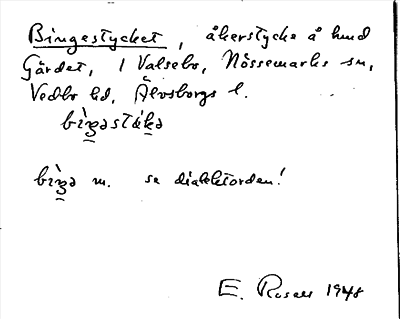 Bingestycket, åkerstycke å
Gärdet, 1 Valsebo, Nössemarks sn,
Vedbo hd, Älvsborgs l.
bìŋəstykə
bìŋə m. se dialektorden!
E. Rosell 1948